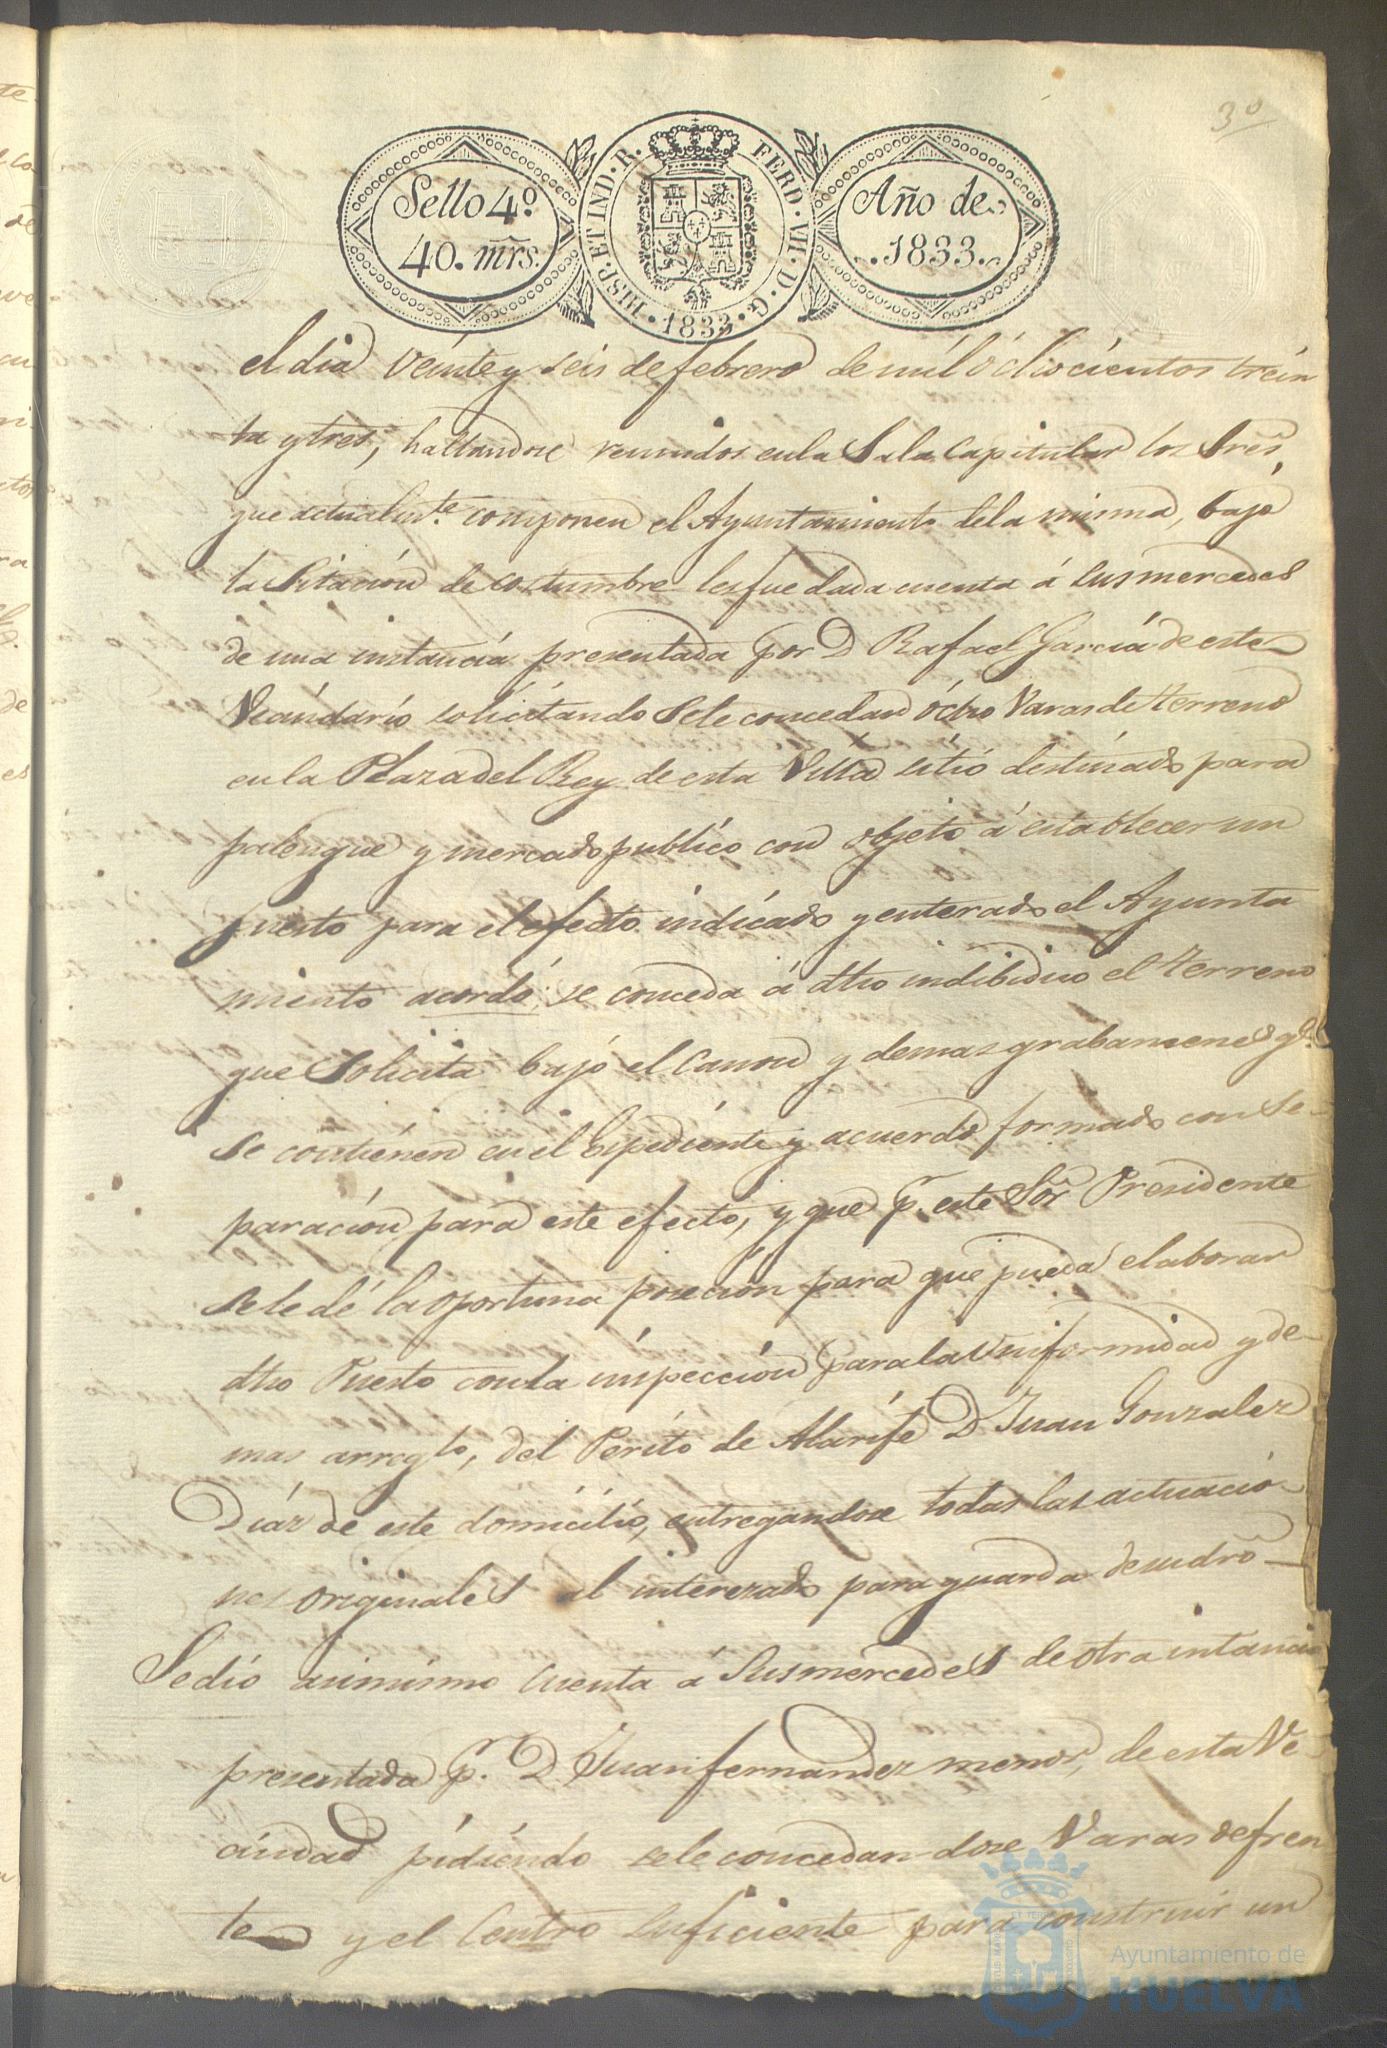 3º
Sello 4º
40. mrs.
HISP. ET IND. R. FERD. VII. D. G. 1833
Año de
1833.
el dia veinte y seis de febrero de mil ochocientos trein
ta y tres, hallandose reunidos en la Sala Capitular los Sres.
que actualmte. componen el Ayuntamiento dela misma, bajo
la Sitación de costumbre les fue dada cuenta á sus mercedes
de una instancia presentada por D Rafael Garcia de este
Vecindario solicitando sele concedan ócho Varas de terreno
en la Plaza del Rey de esta Villa sitio destinado para
palenque y mercado publico con objeto á establecer un
puesto para el efecto indicado y enterado el Ayunta
miento acordó: se conceda á dho indibiduo el terreno
que Solicita bajo el Canon y demas grabamenes qe.
se contienen en el Espediente y acuerdo formado con se-
paración para este efecto, y que pr. este Sor Presidente
sele dé la oportuna posecion para que pueda elaborar
dho Puesto con la inspeccion para la Uniformidad y de-
mas arreglo, del Perito de Alarife D Juan Gonzalez
Diaz de este domicilio, entregandose todas las actuacio-
nes originales al interezado para guarda de su dro
Se dió asimismo cuenta á Sus mercedes de otra intancia
presentada pr. D. Juan fernandez menor, de esta Ve-
cindad pidiendo sele concedan doze Varas de fren
te y el Centro suficiente para construir un
Ayuntamiento de
HUELVA